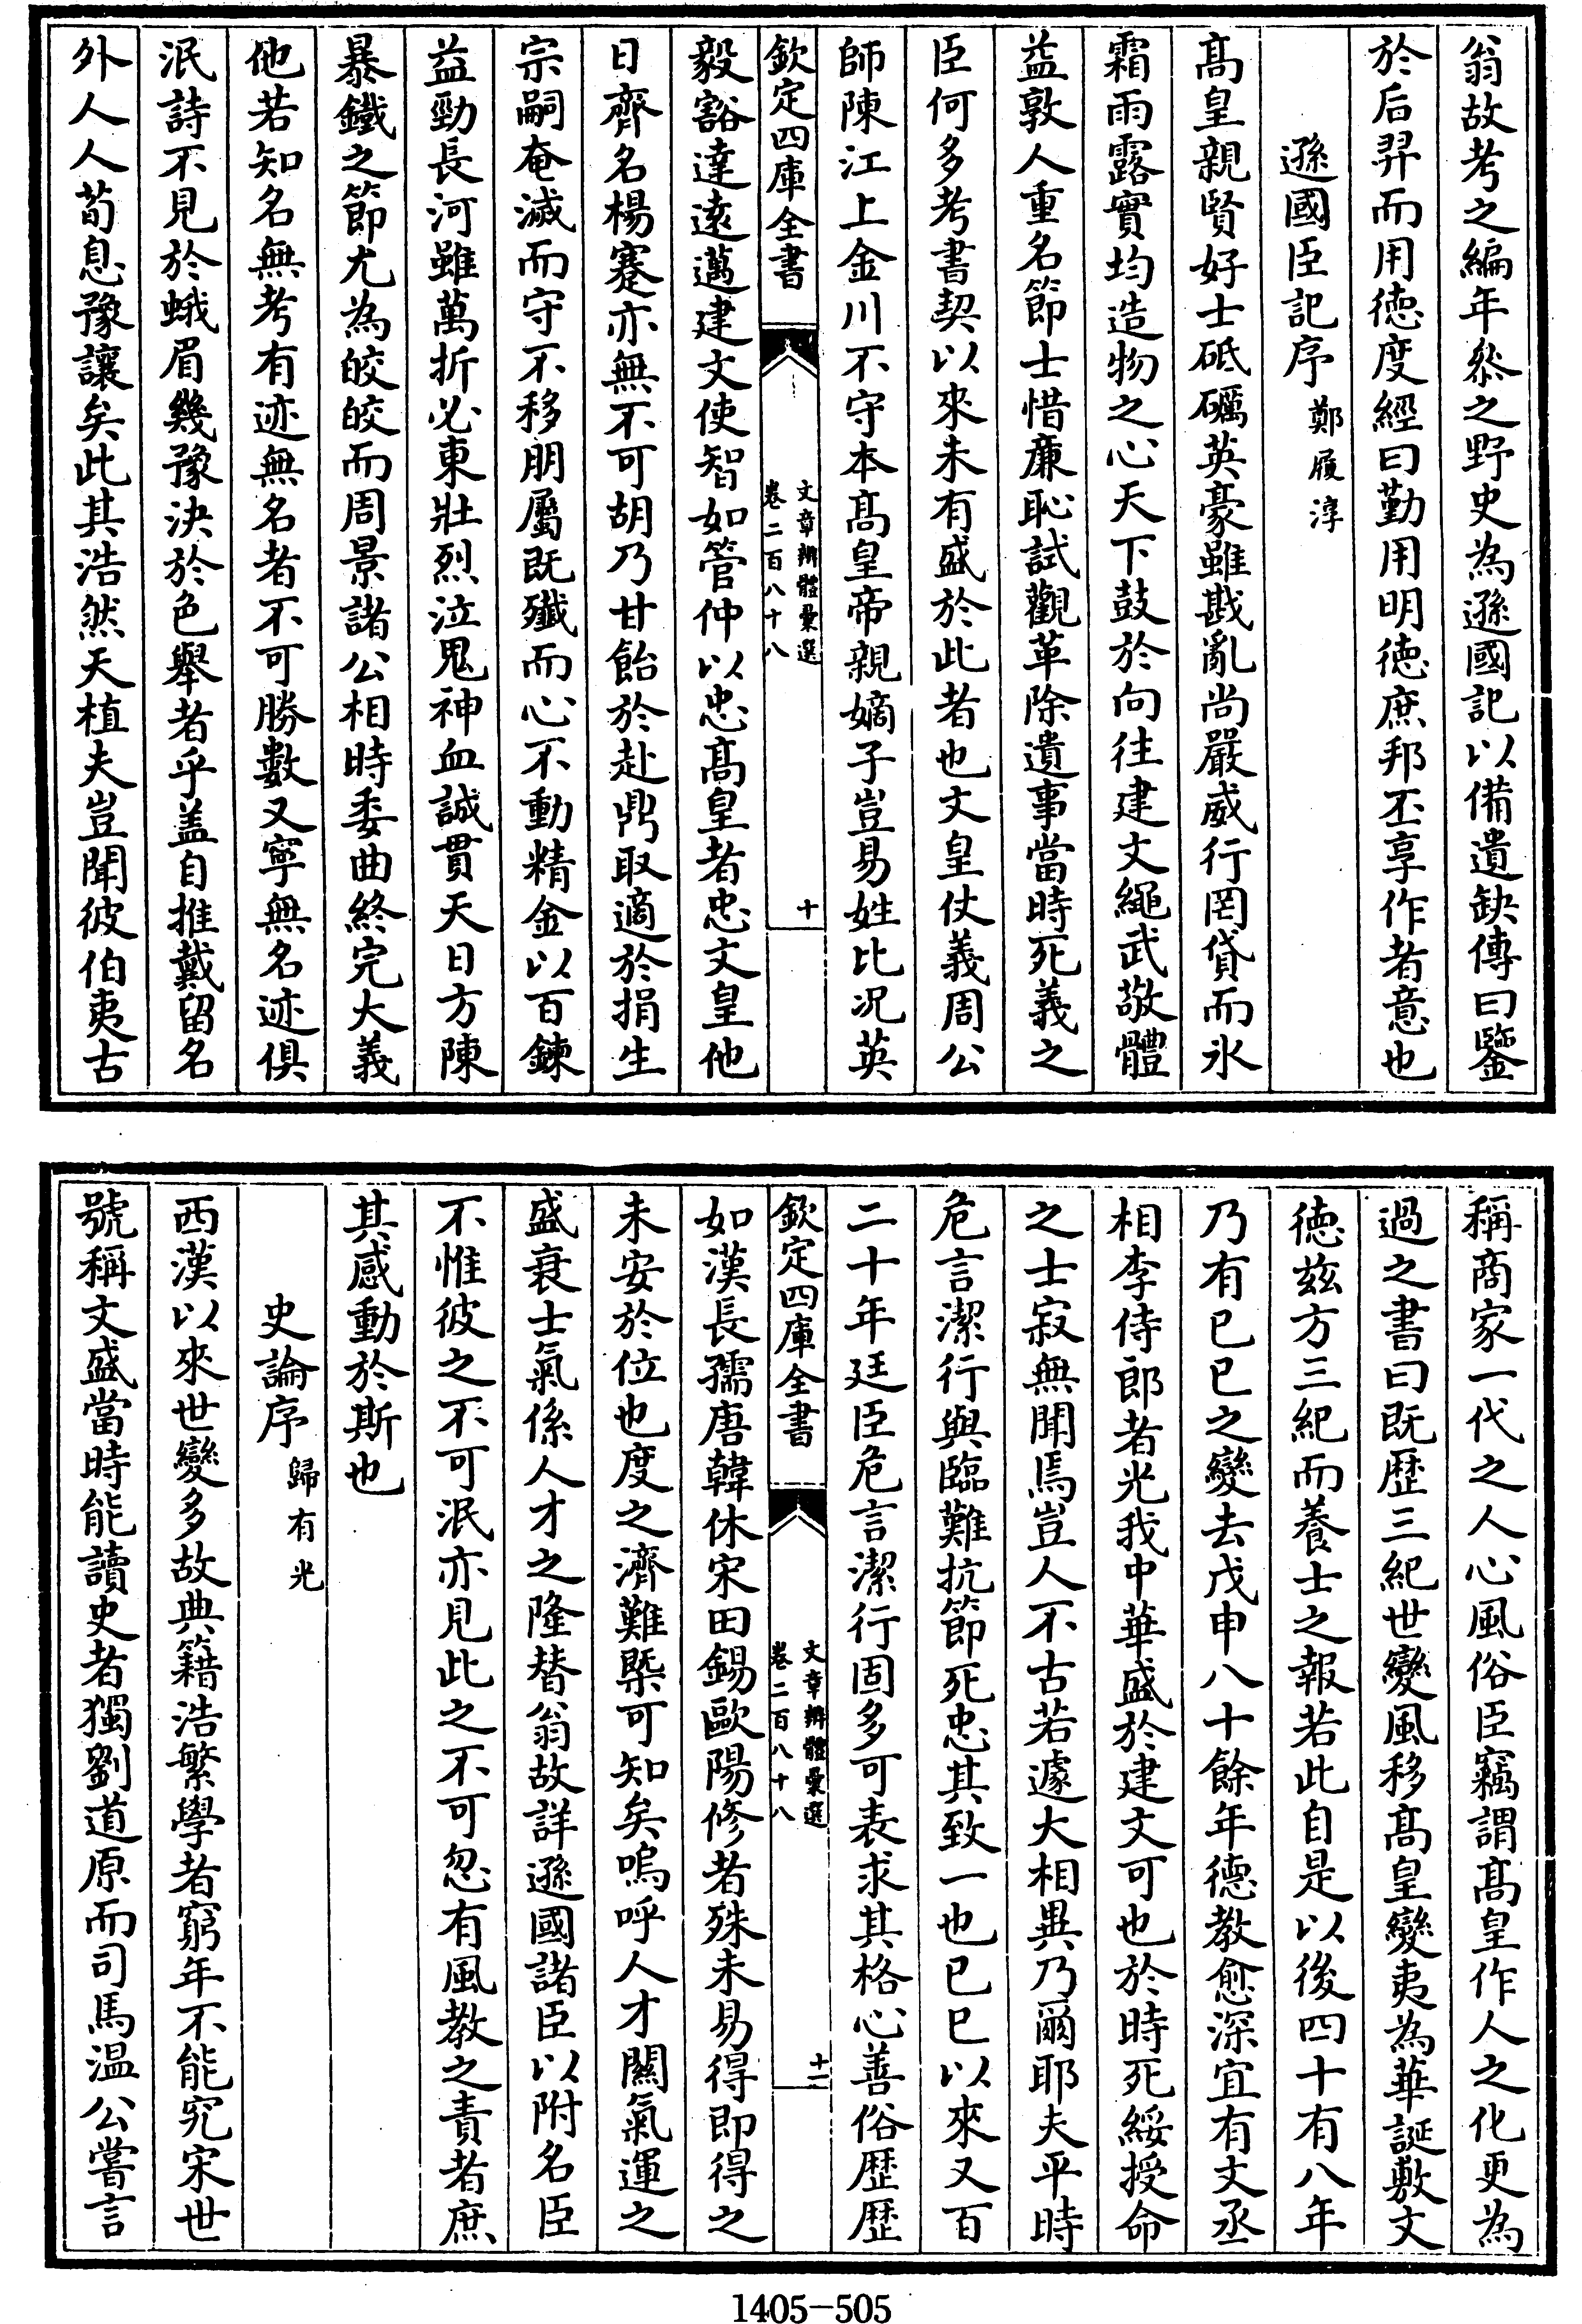 翁故考之編年叅之野史為遜國記以備遺缺傳曰鑒
於后羿而用徳度經曰勤用明徳庶邦丕享作者意也
遜國臣記序 鄭履淳
髙皇親賢好士砥礪英豪雖戡亂尚嚴威行罔貸而氷
霜雨露實均造物之心天下鼓於向往建文繩武敬體
益敦人重名節士惜廉恥試觀革除遺事當時死義之
臣何多考書契以來未有盛於此者也文皇仗義周公
師陳江上金川不守本髙皇帝親嫡子豈易姓比况英
欽定四庫全書
文章辨體彙選
卷二百八十八
十
毅豁達逺邁建文使智如管仲以忠髙皇者忠文皇他
日齊名楊蹇亦無不可胡乃甘飴於赴鼎取適於捐生
宗嗣奄滅而守不移朋屬既殲而心不動精金以百鍊
益勁長河雖萬折必東壯烈泣鬼神血誠貫天日方陳
暴鐵之節尤為皎皎而周景諸公相時委曲終完大義
他若知名無考有迹無名者不可勝數又寧無名迹俱
泯詩不見於蛾眉幾豫決於色舉者乎盖自推戴留名
外人人荀息豫讓矣此其浩然天植夫豈聞彼伯夷古
稱商家一代之人心風俗臣竊謂髙皇作人之化更為
過之書曰既歴三紀世變風移髙皇變夷為華誕敷文
徳茲方三紀而養士之報若此自是以後四十有八年
乃有已巳之變去戊申八十餘年德教愈深宜有文丞
相李侍郎者光我中華盛於建文可也於時死綏授命
之士寂無聞焉豈人不古若遽大相異乃爾耶夫平時
危言潔行與臨難抗節死忠其致一也已巳以來又百
二十年廷臣危言潔行固多可表求其格心善俗歴歴
欽定四庫全書
文章辨體彙選
卷二百八十八
十一
如漢長孺唐韓休宋田錫歐陽修者殊未易得即得之
未安於位也度之濟難槩可知矣嗚呼人才關氣運之
盛衰士氣係人才之隆替翁故詳遜國諸臣以附名臣
不惟彼之不可泯亦見此之不可忽有風教之責者庶
其感動於斯也
史論序 歸有光
西漢以來世變多故典籍浩繁學者窮年不能究宋世
號稱文盛當時能讀史者獨劉道原而司馬温公嘗言
1405-505